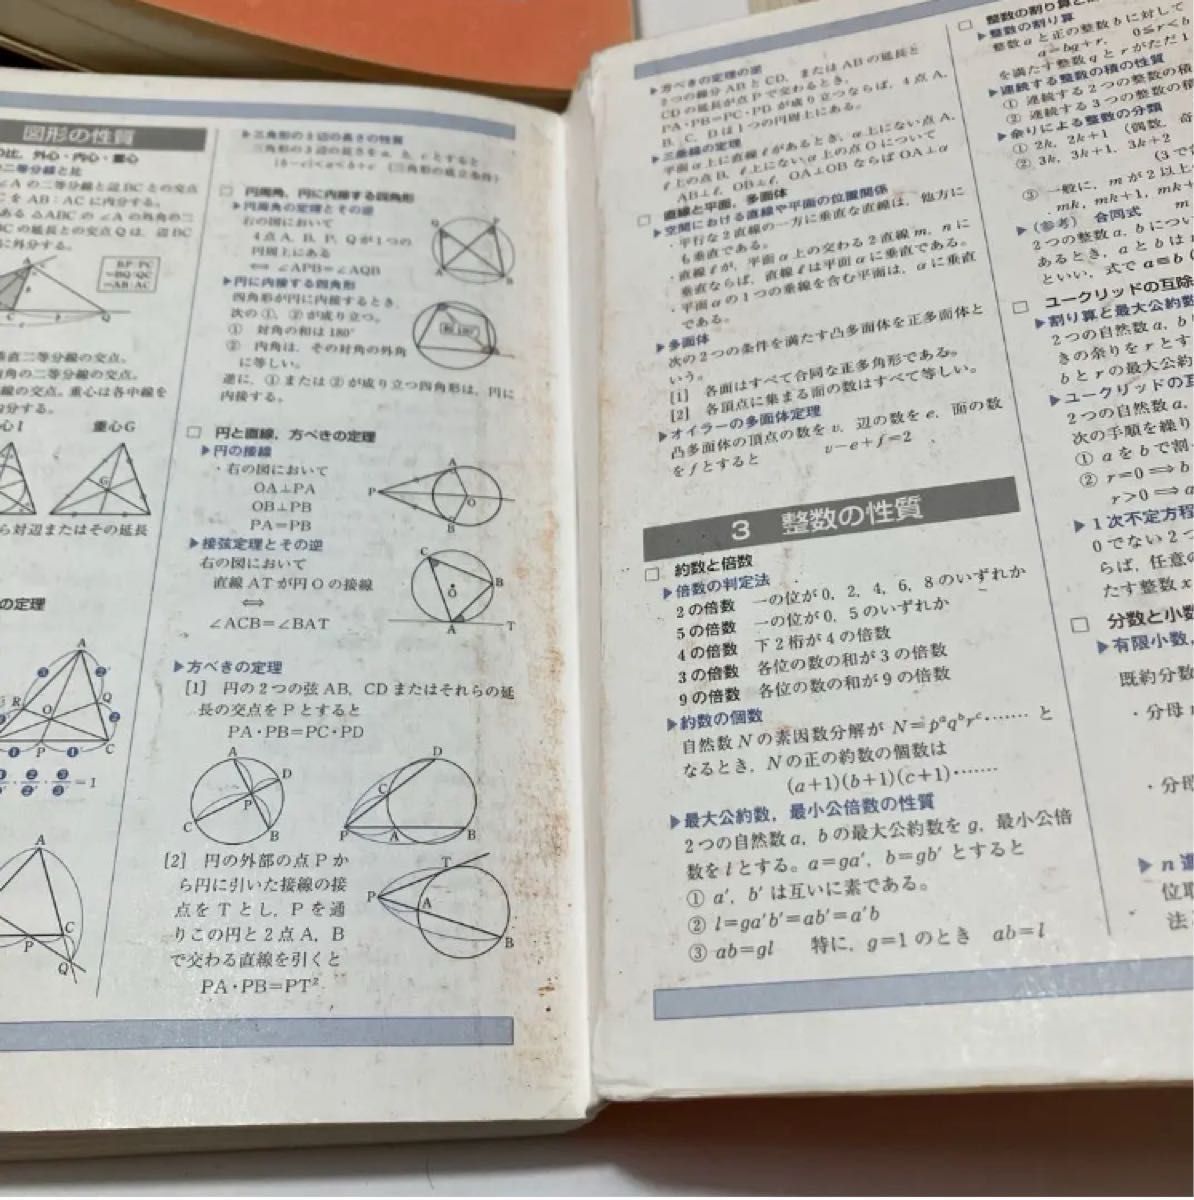 図形の性質
の比，外心・内心・重心
二等分線と比
∠Aの二等分線と辺BCとの交点
をAB：ACに内分する。
ある△ABCの∠Aの外角の二
の延長との交点Qは，辺BC
に外分する。
BP：PC
=BQ：QC
=AB：AC
垂直二等分線の交点。
内角の二等分線の交点。
線の交点。重心は各中線を
内分する。
心I 重心G
ら対辺またはその延長
の定理
=1
▶三角形の3辺の長さの性質
三角形の3辺の長さをa，b，cとすると，
|b-c|<a<b+c （三角形の成立条件）
□ 円周角，円に内接する四角形
▶円周角の定理とその逆
右の図において
4点A，B，P，Qが1つの
円周上にある
⇔ ∠APB=∠AQB
▶円に内接する四角形
四角形が円に内接するとき，
次の①，②が成り立つ。
① 対角の和は180°
② 内角は，その対角の外角
に等しい。
逆に，①または②が成り立つ四角形は，円に
内接する。
□ 円と直線，方べきの定理
▶円の接線
・右の図において
OA⊥PA
OB⊥PB
PA=PB
▶接弦定理とその逆
右の図において
直線ATが円Oの接線
⇔
∠ACB=∠BAT
▶方べきの定理
[1] 円の2つの弦AB，CDまたはそれらの延
長の交点をPとすると
PA・PB=PC・PD
[2] 円の外部の点Pか
ら円に引いた接線の接
点をTとし，Pを通
りこの円と2点A，B
で交わる直線を引くと
PA・PB=PT²
▶方べきの定理の逆
2つの線分ABとCD，またはABの延長と
CDの延長が点Pで交わるとき，
PA・PB=PC・PDが成り立つならば，4点A，
B，C，Dは1つの円周上にある。
▶三垂線の定理
平面α上に直線ℓがあるとき，α上にない点A，
ℓ上の点B，ℓ上にないα上の点Oについて
AB⊥ℓ，OB⊥ℓ，OA⊥OBならばOA⊥α
□ 直線と平面，多面体
▶空間における直線や平面の位置関係
・平行な2直線の一方に垂直な直線は，他方に
も垂直である。
・直線ℓが，平面α上の交わる2直線m，nに
垂直ならば，直線ℓは平面αに垂直である。
・平面αの1つの垂線を含む平面は，αに垂直
である。
▶多面体
次の2つの条件を満たす凸多面体を正多面体と
いう。
[1] 各面はすべて合同な正多角形である。
[2] 各頂点に集まる面の数はすべて等しい。
▶オイラーの多面体定理
凸多面体の頂点の数をv，辺の数をe，面の数
をfとすると v-e+f=2
3 整数の性質
□ 約数と倍数
▶倍数の判定法
2の倍数 一の位が0，2，4，6，8のいずれか
5の倍数 一の位が0，5のいずれか
4の倍数 下2桁が4の倍数
3の倍数 各位の数の和が3の倍数
9の倍数 各位の数の和が9の倍数
▶約数の個数
自然数Nの素因数分解が N=pᵃqᵇrᶜ……… と
なるとき，Nの正の約数の個数は
(a+1)(b+1)(c+1)………
▶最大公約数，最小公倍数の性質
2つの自然数a，bの最大公約数をg，最小公倍
数をlとする。a=ga′，b=gb′とすると
① a′，b′は互いに素である。
② l=ga′b′=ab′=a′b
③ ab=gl 特に，g=1のとき ab=l
□ 整数の割り算と
▶整数の割り算
整数aと正の整数bに対して
a=bq+r，0≦r<b
を満たす整数qとrがただ1
▶連続する整数の積の性質
① 連続する2つの整数の積
② 連続する3つの整数の積
▶余りによる整数の分類
① 2k，2k+1 (偶数，奇
② 3k，3k+1，3k+2
(3で
③ 一般に，mが2以上
mk，mk+1，mk+
▶(参考) 合同式 m
2つの整数a，bについ
あるとき，aとbは
といい，式でa≡b(
□ ユークリッドの互除
▶割り算と最大公約数
2つの自然数a，b
きの余りをrとす
bとrの最大公約
▶ユークリッドの互
2つの自然数a，
次の手順を繰り
① aをbで割
② r=0⟹b
r>0⟹a
▶1次不定方程
0でない2つ
らば，任意の
たす整数x
□ 分数と小数
▶有限小数，
既約分数
・分母
・分母
▶n進
位取
法